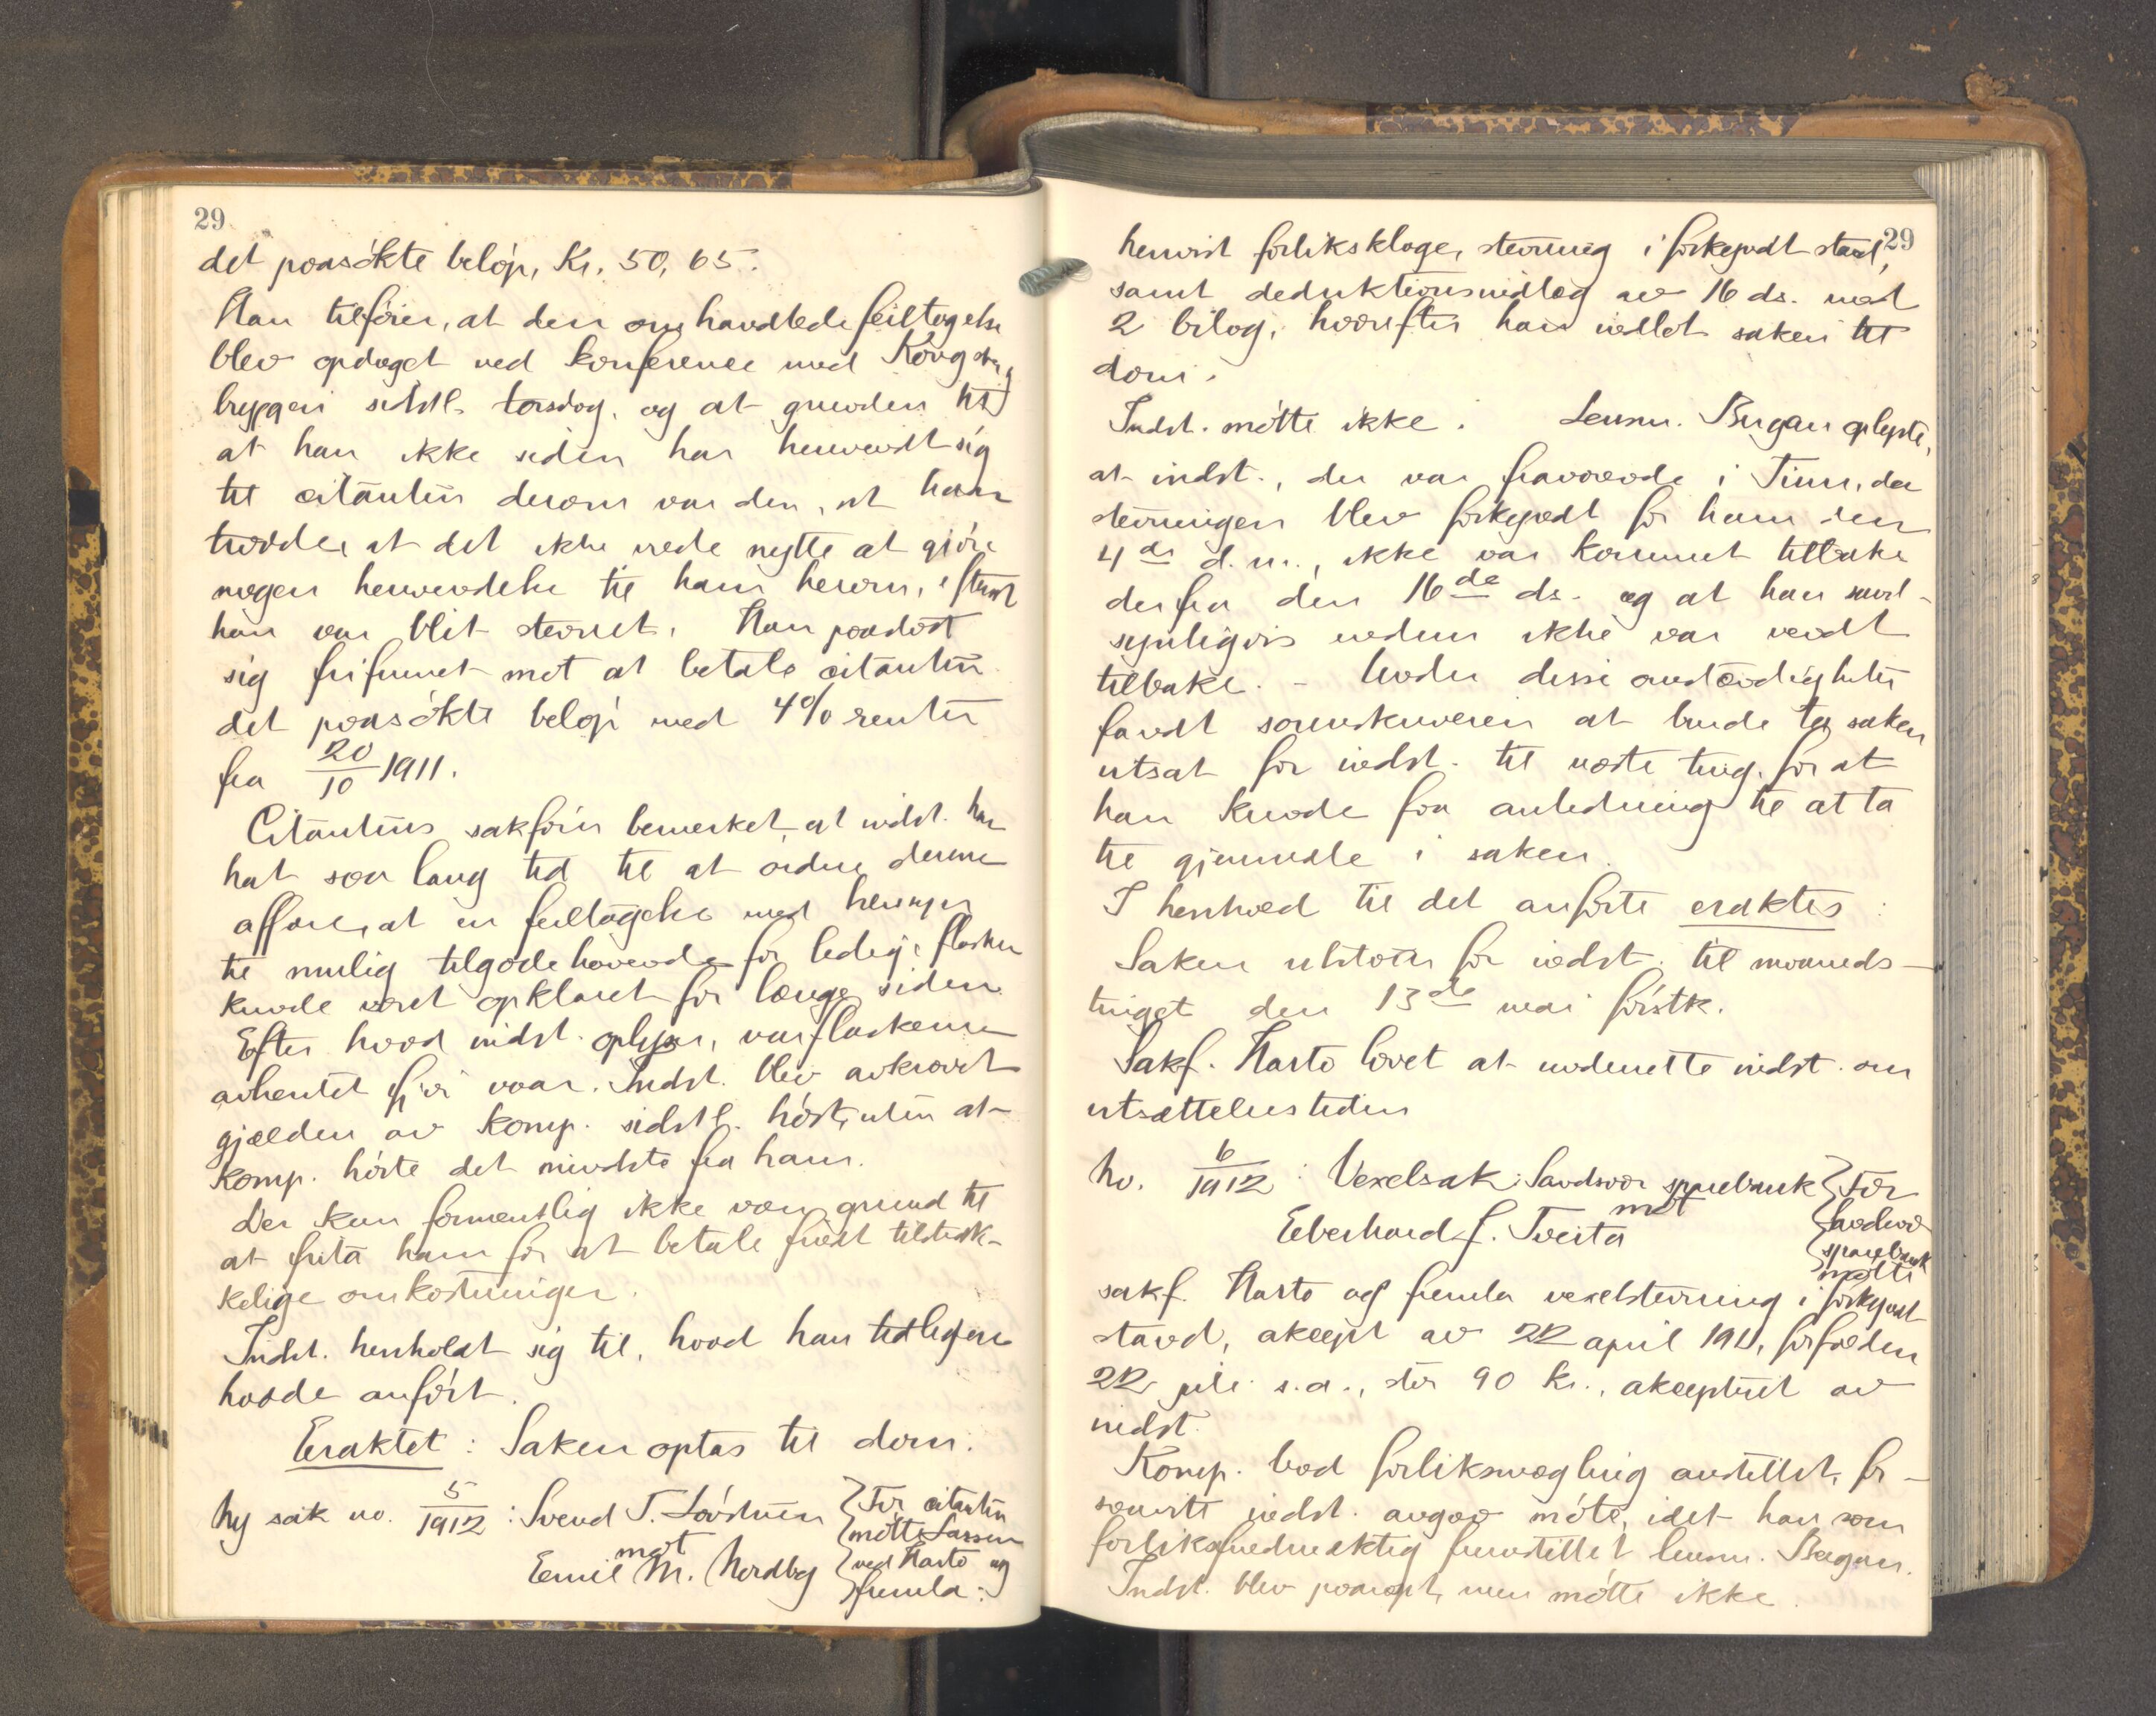 29
det paasökte belöp, Kr. 50,65.
Han tilföier, at den omhandlede feiltagelse
blev opdaget ved konference med Kongsberg
bryggeri sidstl. torsdag, og at grunden til
at han ikke siden har henvendt sig
til citanten derom var den, at han
trodde, at det ikke vilde nytte at gjöre
nogen henvendelse til ham herom, eftersom
han var blit stevnet. Han paastod
sig frifunnet mot at betale citanten
det paasökte belöp med 4% renter
fra 20/10 1911.
Citantens sakförer bemerket, at indst. har
hat saa lang tid til at ordne denne
affære, at en feiltagelse med hensyn
til mulig tilgodehavende for ledige flasker
kunde været opklaret for længe siden.
Efter hvad indst. oplyser, var flaskerne
avhentet ifjor vaar. Indst. blev avkrævet
gjælden av komp. sidstl. höst, uten at
komp. hörte det mindste fra ham.
Der kan formentlig ikke være grund til
at frita ham for at betale fuldt tilstræk-
kelige omkostninger.
Indst. henholdt sig til, hvad han tidligere
hadde anfört.
Eraktet: Saken optas til dom.
Ny sak no. 5/1912: Svend T. Lövstuen
mot
Emil M. Nordby
For citanten
mötte Larsen
ved Harto og
fremla:
29
henvist forliksklage, stevning i forkyndt stand,
samt deduktionsindlæg av 16 ds. med
2 bilag, hvorefter han indlot saken til
dom.
Indst. mötte ikke. Lensm. Bugan oplyste,
at indst., der var fraværende i Tinn, da
stevningen blev forkyndt for ham den
4de d.m., ikke var kommet tilbake
derfra den 16de ds. og at han sand-
synligvis endnu ikke var vendt
tilbake. - Under disse omstændigheter
fandt sorenskriveren at burde ta saken
utsat for indst. til næste ting, for at
han kunde faa anledning til at ta
til gjenmæle i saken.
I henhold til det anförte eraktes:
Saken utstaar for indst. til maaneds-
tinget den 13de mai förstk.
Sakf. Harto lovet at underrette indst. om
utsættelsestiden
No. 6/1912: Vexelsak: Sandsvær sparebank
mot
Eberhard J. Tveita
For
Sandsvær
sparebank
mötte
sakf. Harto og fremla vexelstevning i forkyndt
stand, aksept av 22 april 1911, forfalden
22 juli s.a., stor 90 kr., akceptert av
indst.
Komp. bad forliksmægling anstillet, for-
saavitt indst. avgav möte, idet han som
forliksfuldmægtig fremstillet lensm. Bugan.
Indst. blev paaropt, men mötte ikke.